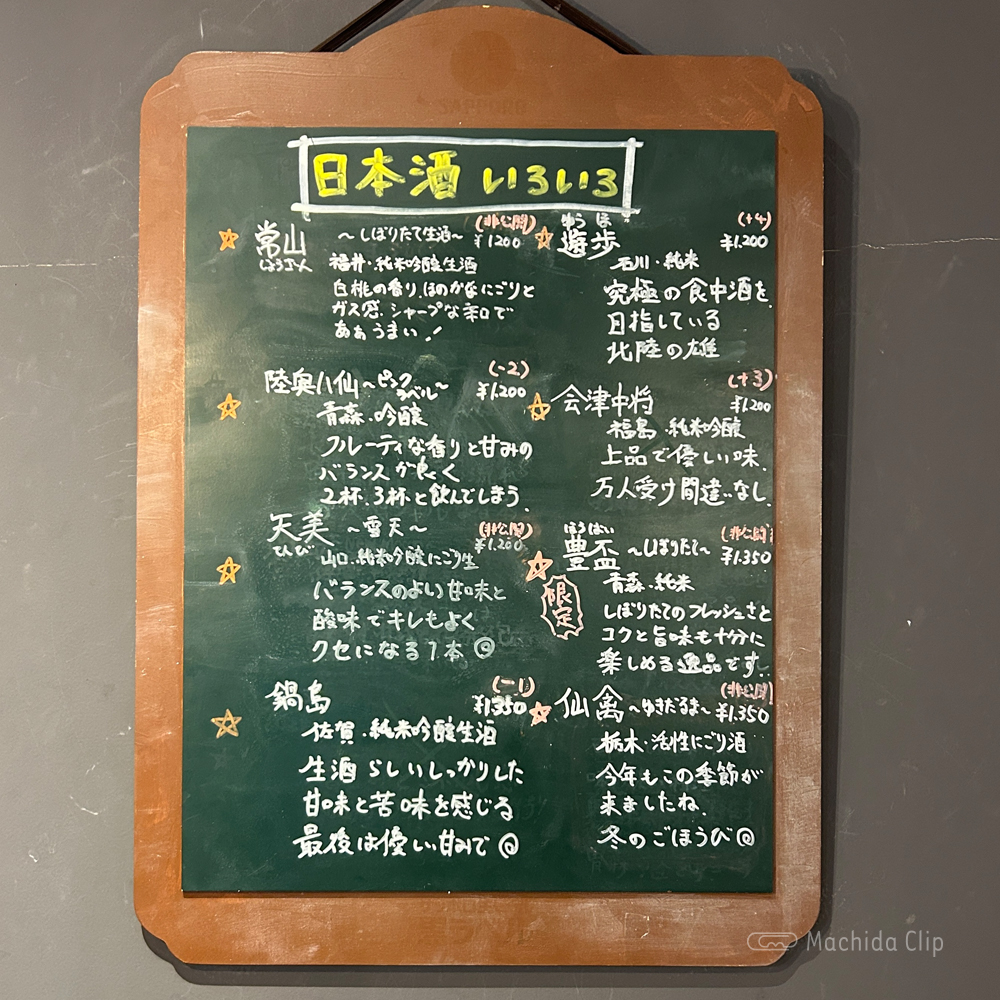 SAPPORO
日本酒 いろいろ
常山 ～しぼりたて生酒～ (非公開) ¥1200
じょうざん
福井・純米吟醸生酒
白桃の香り、ほのかなにごりと
ガス感、シャープな辛口で
あぁうまい!
陸奥八仙 ～ピンクラベル～ (-2) ¥1,200
青森・吟醸
フルーティな香りと甘みの
バランスが良く
2杯、3杯と飲んでしまう
天美 ～雪天～ (非公開) ¥1,200
てんび
山口・純米吟醸にごり生
バランスのよい甘味と
酸味でキレもよく
クセになる1本
鍋島 (-1) ¥1350
佐賀・純米吟醸生酒
生酒らしいしっかりした
甘味と苦味を感じる
最後は優しい甘みで
ゆうほ
遊歩 (+4) ¥1,200
石川・純米
究極の食中酒を
目指している
北陸の雄
会津中将 (+3) ¥1,200
福島・純米吟醸
上品で優しい味、
万人受け間違いなし
ほうはい
豊盃 ～しぼりたて～ (非公開) ¥1.350
限定
青森・純米
しぼりたてのフレッシュさと
コクと旨味も十分に
楽しめる逸品です。
仙禽 ～ゆきだるま～ (非公開) ¥1.350
栃木・活性にごり酒
今年もこの季節が
来ましたね、
冬のごほうび
Machida Clip